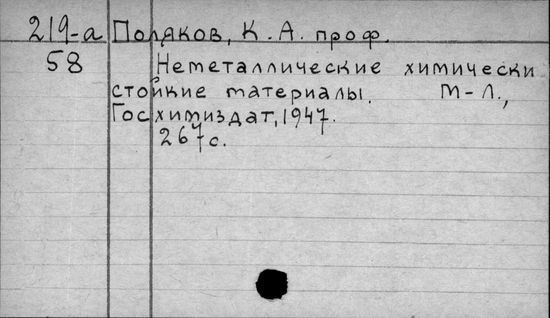 219-а Поляков, К. А. проф.
58 Неметаллические химически
стойкие материалы. М-Л.,
Госхимиздат, 1947.
267с.